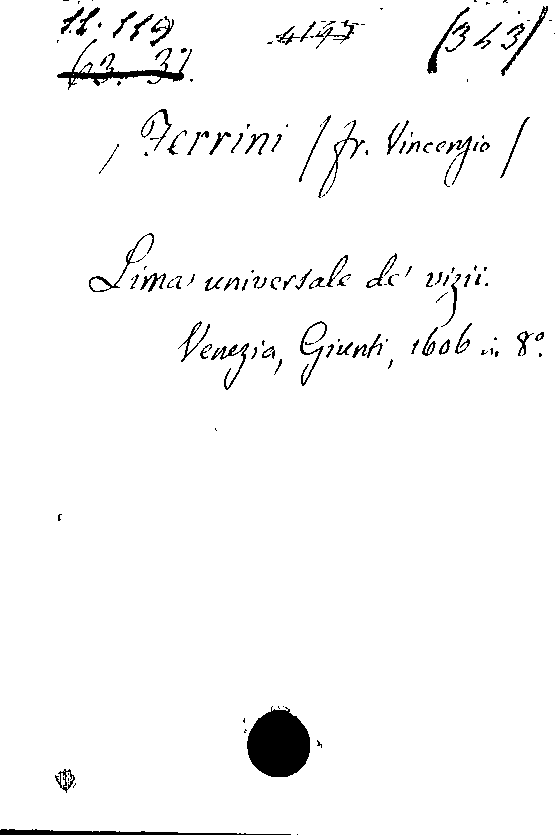 11. 119 4195 (343)
63. 37.
Ferrini / fr. Vincenzio /
Lima universale de' vizii.
Venezia, Giunti, 1606 in 8º.